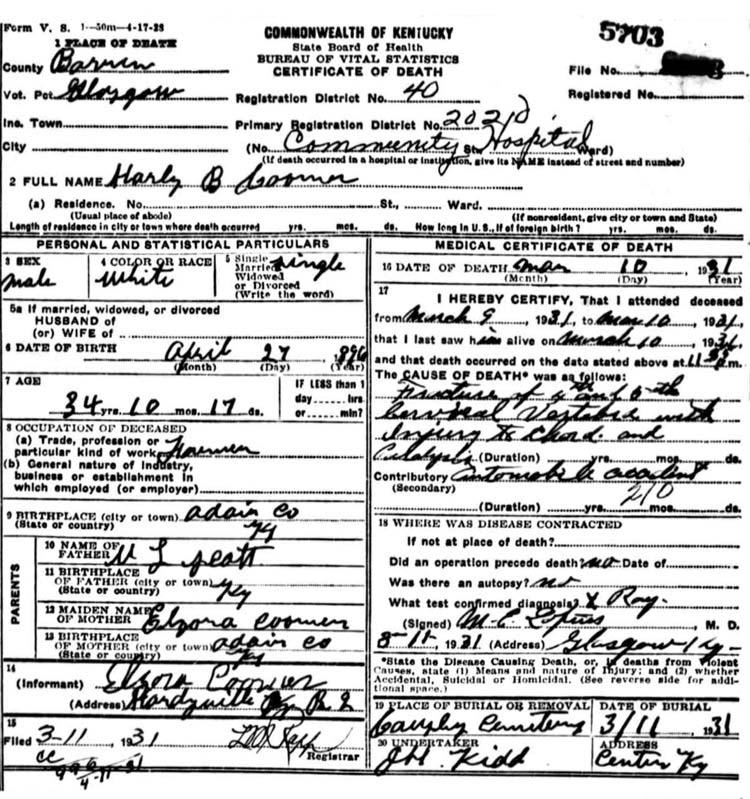 Form V. S. 1-50m-4-17-28
COMMONWEALTH OF KENTUCKY
State Board of Health
BUREAU OF VITAL STATISTICS
CERTIFICATE OF DEATH
5703
1 PLACE OF DEATH
County Barren
File No.
Vot. Pct. Glasgow
Registration District No. 40
Registered No.
Inc. Town
Primary Registration District No. 20210
City
(No. Community Hospital St. Ward)
(If death occurred in a hospital or institution, give its NAME instead of street and number)
2 FULL NAME Harly B Coomer
(a) Residence. No. St., Ward.
(Usual place of abode) (If nonresident, give city or town and State)
Length of residence in city or town where death occurred yrs. mos. ds. How long in U. S., if of foreign birth? yrs. mos. ds.
PERSONAL AND STATISTICAL PARTICULARS
3 SEX
male
4 COLOR OR RACE
White
5 Single
Married
Widowed
or Divorced
(Write the word)
single
5a If married, widowed, or divorced
HUSBAND of
(or) WIFE of
6 DATE OF BIRTH April 27, 1896
(Month) (Day) (Year)
7 AGE
34 yrs. 10 mos. 17 ds.
IF LESS than 1
day hrs
or min?
8 OCCUPATION OF DECEASED
(a) Trade, profession or
particular kind of work Farmer
(b) General nature of industry,
business or establishment in
which employed (or employer)
9 BIRTHPLACE (city or town) adair co
(State or country) Ky
PARENTS
10 NAME OF
FATHER
11 BIRTHPLACE
OF FATHER (city or town)
(State or country) Ky
12 MAIDEN NAME
OF MOTHER Elzora Coomer
13 BIRTHPLACE
OF MOTHER (city or town) adair co
(State or country) Ky
14
(Informant) Elzora Coomer
(Address) Hardyville Ky R 2
15
Filed 3-11, 1931
Registrar
cc
4-11-31
MEDICAL CERTIFICATE OF DEATH
16 DATE OF DEATH Mar 10, 1931
(Month) (Day) (Year)
17
I HEREBY CERTIFY, That I attended deceased
from March 9, 1931, to Mar 10, 1931,
that I last saw him alive on March 10, 1931,
and that death occurred on the date stated above at 11 m.
The CAUSE OF DEATH* was as follows:
Fracture of and 6th
Cervical Vertebra with
Injury to Chord. and
(Duration) yrs. mos. ds.
Contributory automobile accident
(Secondary) 210
(Duration) yrs. mos. ds.
18 WHERE WAS DISEASE CONTRACTED
If not at place of death?
Did an operation precede death? no Date of
Was there an autopsy? no
What test confirmed diagnosis? X Ray
(Signed) M. D.
1931 (Address) Glasgow Ky
*State the Disease Causing Death, or, in deaths from Violent
Causes, state (1) Means and nature of Injury; and (2) whether
Accidental, Suicidal or Homicidal. (See reverse side for addi-
tional space.)
19 PLACE OF BURIAL OR REMOVAL
Cemetery
DATE OF BURIAL
3/11 1931
20 UNDERTAKER
JH Kidd
ADDRESS
Center Ky